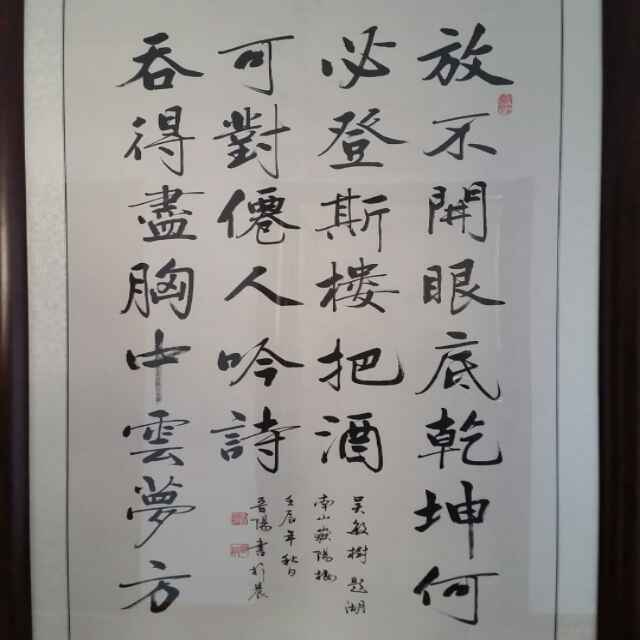 放不開眼底乾坤何
必登斯楼把酒
吞得盡胸中雲夢方
可對僊人吟詩
吴敏樹题湖
南嶽陽楼
壬辰年秋日
晋陽書於